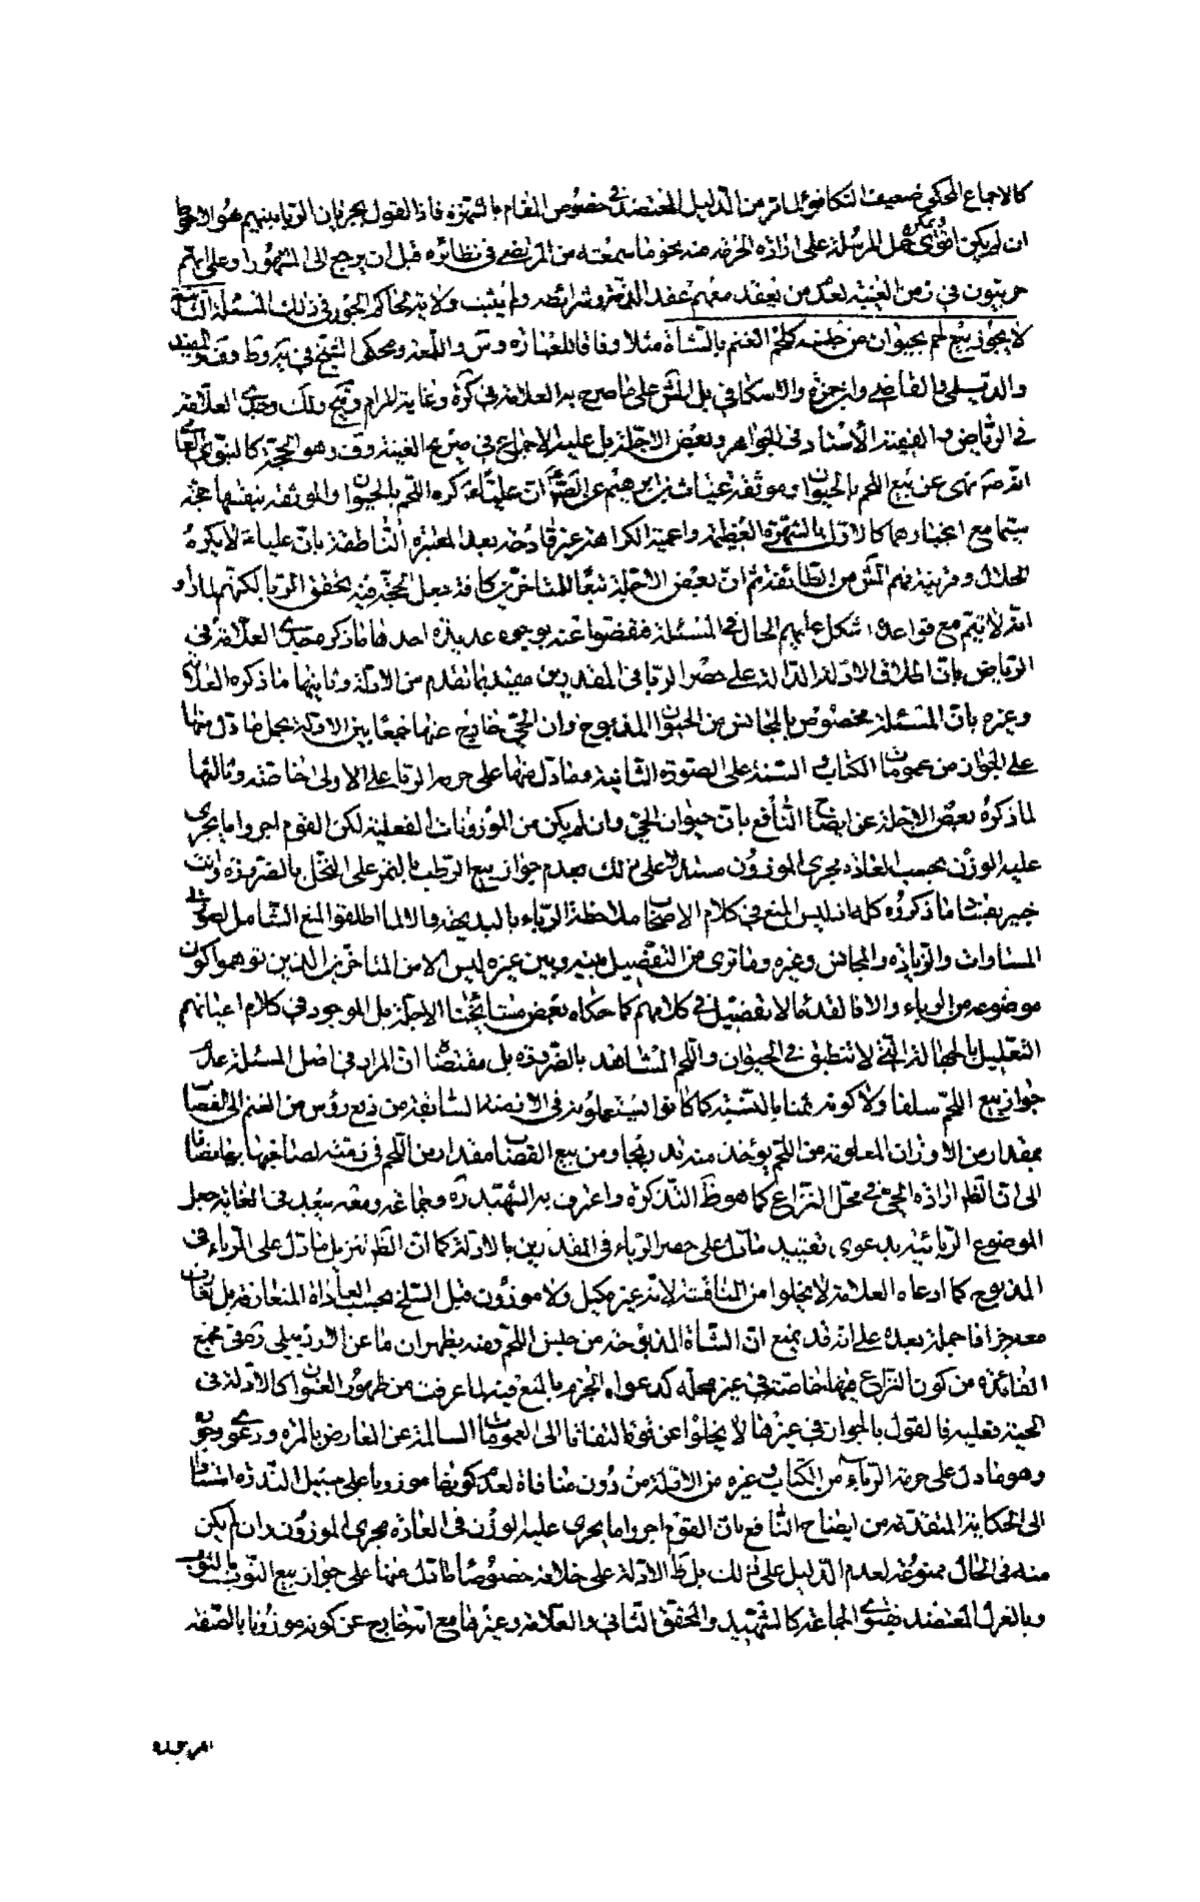 كالاجماع المحكى ضعيف التكافؤ لما مر من الدليل المعتضد فى خصوص المقام بالشهرة فاذا القول بجريان الربا بينهم هو الاحوط
ان لم يكن اقوى بحمل المرسلة على ارادة الحرمة منه بنحو ما سمعته من المرتضى فى نظائره قبل ان يرجع الى المشهور وعلى انهم
حربيون فى زمن الغيبة لعدم من يعقد معهم عقد الذمة وشرائطه ولم يثبت ولاية لحاكم الجور فى ذلك المسئلة التاسعة
لا يجوز بيع لحم بحيوان من جنسه كلحم الغنم بالشاة مثلا وفاقا للمختار ده وس واللمعة ومحكى الشيخ فى ير وط وقف والمفيد
والديلمى والقاضى وابن حمزة والاسكافى بل المش على ما صرح به العلامة فى كرة وغاية المرام وفتح ولك وجدى العلامة
فى الرياض والفقيه الاستاد فى الجواهر وبعض الاجلة بل عليه الاجماع فى صريح الغنية وقف وهو الحجة كالنبوى العامى
انه ص نهى عن بيع اللحم بالحيوان وموثقة غياث بن ابرهيم عن الصادق ان عليا ع كره اللحم بالحيوان والموثقة بنفسها حجة
سيما مع انجبارهما كالاول بالشهرة العظيمة واعمية الكراهة غير قادحة بعد المعتبرة الناطقة بان عليا ع لا يكره
الحلال وقرينية فهم المش من الطائفة ثم ان بعض الاجلة تبعا للمتاخرين كافة جعل الحجة فيه تحقق الربا لكنهم لما راوا
انه لا يتم مع قواعده اشكل عليهم الحال فى المسئلة فتفصوا عنه بوجوه عديدة احدها ما ذكره جدى العلامة فى
الرياض بان اطلاق الادلة الدالة على حصر الربا فى المقدرين مقيد بما تقدم من الادلة وثانيها ما ذكره العلامة
وغيره بان المسئلة مخصوص بالمجانس من الحيوان المذبوح وان الحى خارج عنها جمعا بين الادلة بحمل ما دل منها
على الجواز من عمومات الكتاب والسنة على الصورة الثانية وما دل منها على حرمة الربا على الاولى خاصة وثالثها
ما ذكره بعض الاجلة عن ايضاح النافع بان حيوان الحى وان لم يكن من الموزونات الفعلية لكن القوم اجروا ما يجرى
عليه الوزن بحسب العادة مجرى الموزون مستدلا على ذلك بعدم جواز بيع الرطب بالتمر على النخل بالضرورة وانت
خبير بفساد ما ذكروه كله اذ ليس المنع فى كلام الاصحاب ملاحظة الرباء بالبديهة والا لما اطلقوا المنع الشامل لصورتى
المساوات والزيادة والمجانس وغيره وما ترى من التفصيل بينه وبين غيره ليس الا من المتاخرين الذين توهموا كون
موضوعه من الرباء والا فالقدماء لا تفصيل فى كلامهم كما حكاه بعض مشائخنا الاجلة بل الموجود فى كلام اعيانهم
التعليل بالجهالة التى لا تنطبق فى الحيوان واللحم المشاهد بالضرورة بل مقتضاه ان المراد فى اصل المسئلة عدم
جواز بيع اللحم سلفا ولا كونه ثمنا بالنسية كما كانوا يستعملونه فى الازمنة السابقة من دفع رؤس من الغنم الى القصاب
بمقدار من الاوزان المعلومة من اللحم يؤخذ منه تدريجا ومن بيع القصاب مقدار من اللحم فى ذمته لصاغبها بغامضا
الى ان الظ ارادة الحى فى محل النزاع كما هو ظ التذكرة واعترف به الشهيد ره وجماعة ومعه يبعد فى الغاية جعل
الموضوع الربائية بدعوى تقييد ما دل على حصر الرباء فى المقدرين بالادلة كما ان الظ تنزيل ما دل على الرباء فى
المذبوح كما ادعاه العلامة لا يخلوا من المناقشة لانه غير مكيل ولا موزون قبل السلخ بحسب العاداة المتعارفة بل تعارف
معه جزافا حملة بعده على انه قد يمنع ان الشاة المذبوحة من جنس اللحم ومنه يظهر ان ما عن الاردبيلى ره فى مجمع
الفائدة من كون النزاع فيها خاصة فى غير محله كدعواه الجزم بالمنع فيه لما عرفت من ظهور العنوان كالادلة فى
الحية وعليه فالقول بالجواز فى غيرها لا يخلوا عن قوة التفاتا الى العمومات السالمة عن المعارض بالمرة ودعوى وجوده
وهو ما دل على حرمة الرباء من الكتاب وغيره من الادلة من دون منافاة لعدم كونها موزونا على سبيل الندرة استنادا
الى الحكاية المتقدمة من ايضاح النافع بان القوم اجروا ما يجرى عليه الوزن فى العادة مجرى الموزون وان لم يكن
منه فى الحال ممنوعة لعدم الدليل على ذلك بل ظ الادلة على خلافه خصوصا ما دل منها على جواز بيع الثوب بالثوب
وبالغزل المعتضد بفتوى الجماعة كالشهيد والمحقق الثانى والعلامة وغيرها مع انه خارج عن كونه موزونا بالصفة